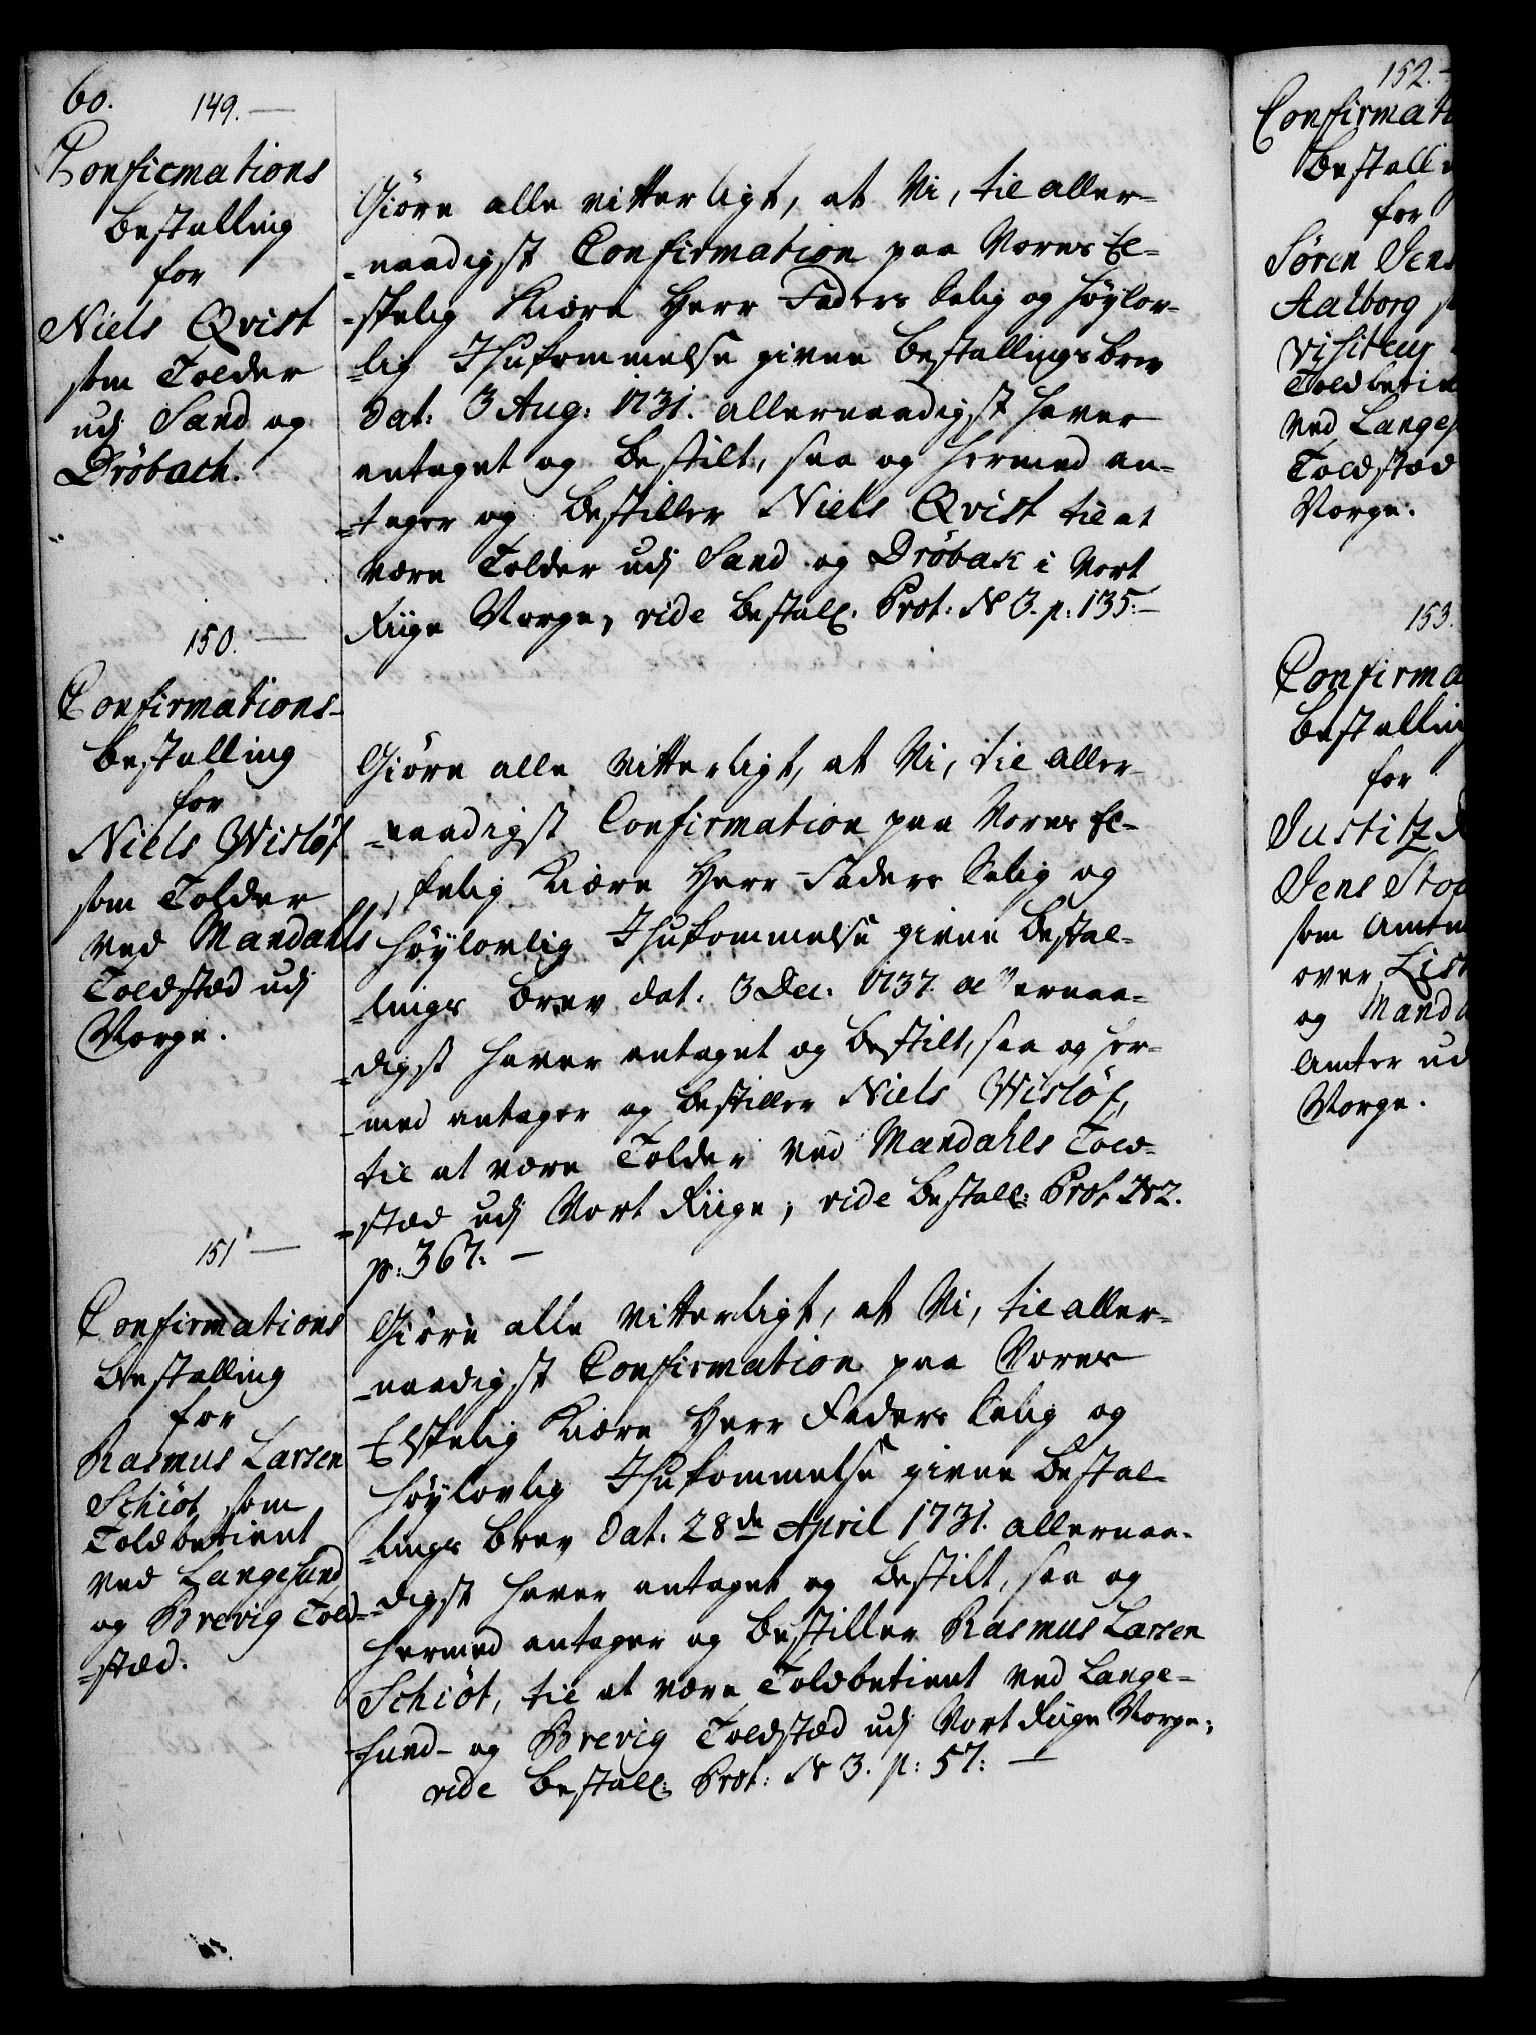 60.
149.
Confirmations
Bestalling
for
Niels Qvist
som Tolder
udj Sand og
Dröbach.
Giöre alle vitterligt, at Vi, til aller-
-naadigst Confirmation paa Vores El-
-skelig Kiære Herr Faders Salig og Höylov-
-lig Ihukommelse givne Bestallings brev
dat: 3 Aug: 1731. allernaadigst haver
antaget og bestilt, saa og hermed an-
-tager og bestiller Niels Qvist til at
være Tolder udj Sand og Dröbak i Vort
Riige Norge, vide Bestall: Prot: N 3. p: 135.
150.
Confirmations-
bestalling
for
Niels Wislöf
som Tolder
ved Mandahls
Toldstæd udj
Norge.
Giöre alle vitterligt, at Vi, til aller-
-naadigst Confirmation paa Vores El-
skelig Kiære Herr Faders Salig og
Höylovlig Ihukommelse givne Bestal-
-lings brev dat. 3 Dec. 1737. allernaa-
-digst haver antaget og bestilt, saa og her-
-med antager og bestiller Niels Wislöf,
til at være Tolder ved Mandahls Told-
-stæd udj Vort Riige, vide Bestall: Prot
p: 367.
151
Confirmations
Bestalling
for
Rasmus Larsen
Schiöt som
Toldbetient
ved Langesund
og Brevig Told-
-stæd.
Giöre alle vitterligt, at Vi, til aller-
-naadigst Confirmation paa Vores
Elskelig Kiære Herr Faders Salig og
Höylovlig Ihukommelse givne Bestal-
-lings brev dat. 28de April 1731. allernaa-
-digst haver antaget og bestilt, saa og
hermed antager og bestiller Rasmus Larsen
Schiöt, til at være Toldbetient ved Lange-
-sund- og Brevig Toldstæd udj Vort Riige Norge,
vide Bestall: Prot: N 3. p: 57.
152.
Confirmati
Bestalli
for
Sören Jens
Aalborg
Visiteur
Toldbeti
ved Langes
Toldstæd
Norge.
153.
Confirma
Bestalling
for
Justitz
Jens Sto
som Amtm
over List
og Manda
Amter ud
Norge.